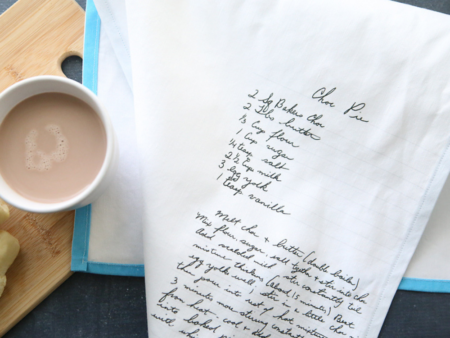 Choc Pie
2 sq Bakers Choc
2 Tbs butter
⅓ Cup flour
1 Cup sugar
¼ teasp salt
2½ Cup milk
3 egg yolk
1 teasp vanilla
Melt choc & butter (double boiler)
Mix flour sugar salt together & stir into choc
Add milk and stir constantly til
mixture thickens (about 15 minutes) Beat
egg yolks well, stir in a little choc
then pour into rest of hot mixture
3 minutes more stirring constantly
from heat: cool & add
into baked